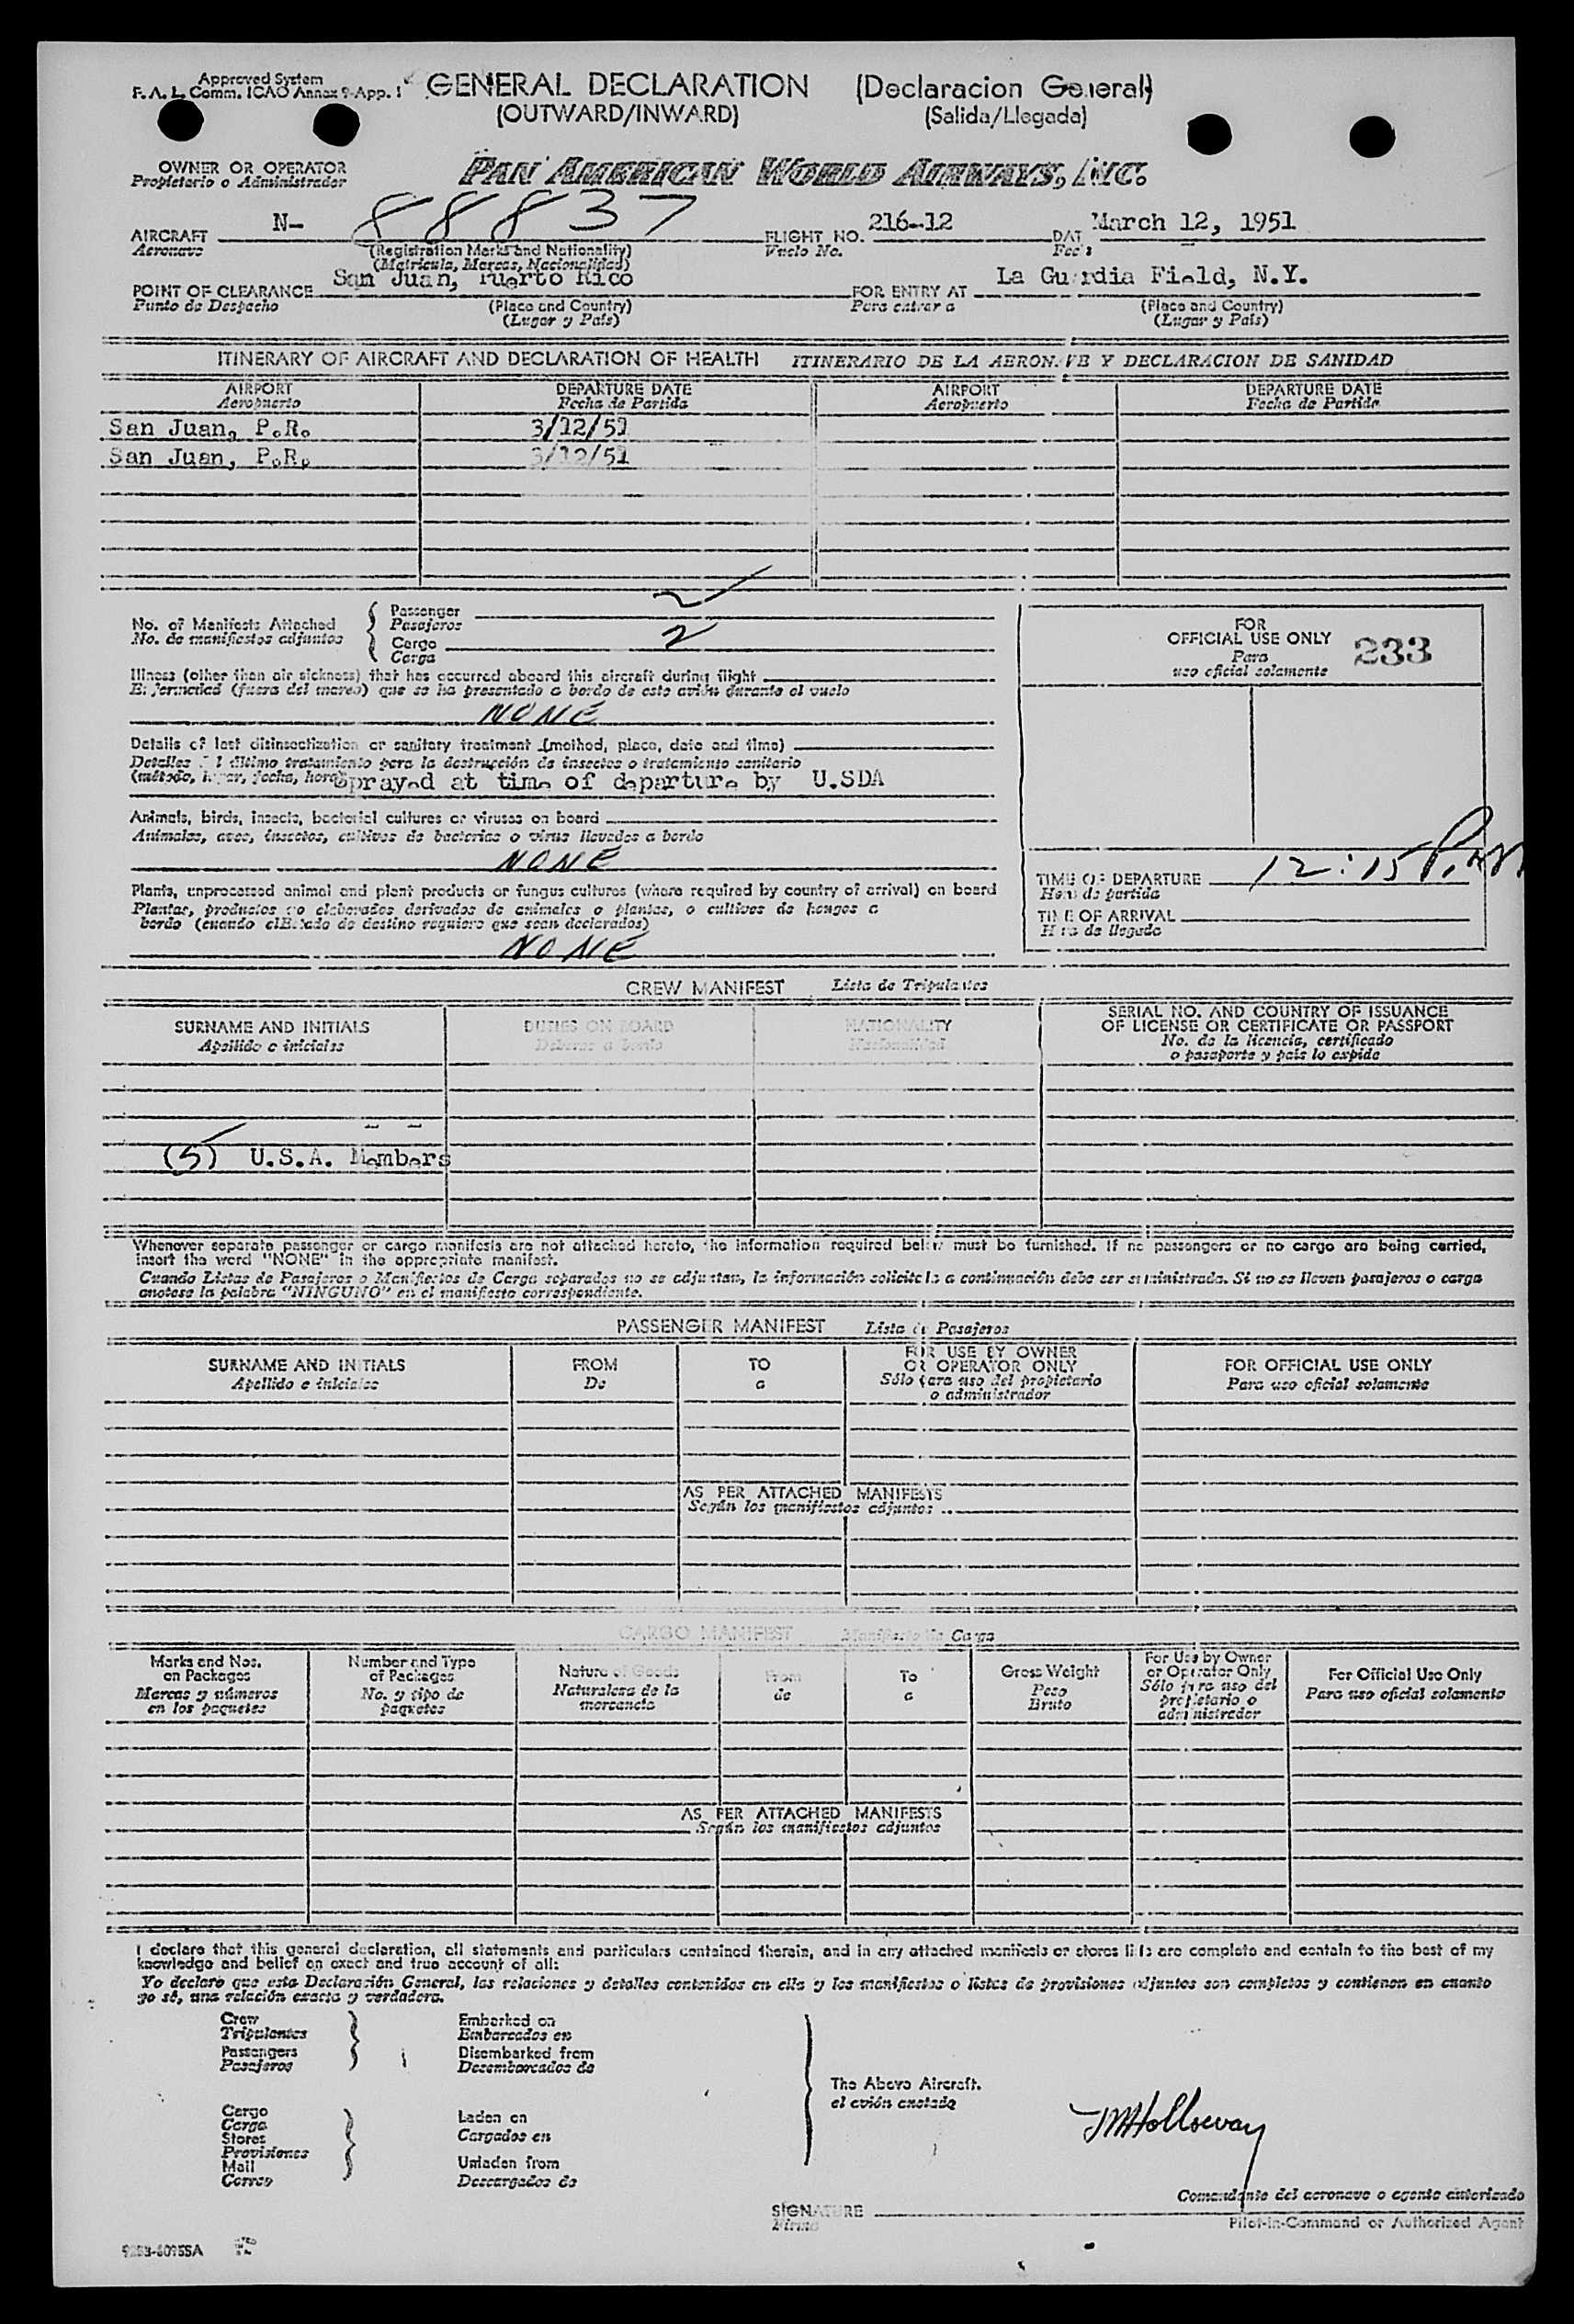 Approved System
F. A. L. Comm. ICAO Annex 9-App. 1
GENERAL DECLARATION (Declaracion General)
(OUTWARD/INWARD) (Salida/Llegada)
OWNER OR OPERATOR
Propietario o Administrador
PAN AMERICAN WORLD AIRWAYS, INC.
AIRCRAFT N- 88837 FLIGHT NO. 216-12 DAT March 12, 1951
Aeronave (Registration Marks and Nationality) Vuelo No.
(Matricula, Marcas, Nacionalidad)
POINT OF CLEARANCE San Juan, Puerto Rico FOR ENTRY AT La Guardia Field, N.Y.
Punto de Despacho (Place and Country) Para entrar a (Place and Country)
(Lugar y País) (Lugar y País)
ITINERARY OF AIRCRAFT AND DECLARATION OF HEALTH ITINERARIO DE LA AERONAVE Y DECLARACION DE SANIDAD
AIRPORT DEPARTURE DATE AIRPORT DEPARTURE DATE
Aeropuerto Fecha de Partida Aeropuerto Fecha de Partida
San Juan, P.R. 3/12/51
San Juan, P.R. 3/12/51
No. of Manifests Attached
No. de manifiestos adjuntos
Passenger 2
Pasajeros
Cargo 2
Carga
FOR
OFFICIAL USE ONLY 233
Para
uso oficial solamente
Illness (other than air sickness) that has occurred aboard this aircraft during flight
Enfermedad (fuera del mareo) que se ha presentado a bordo de este avión durante el vuelo
NONE
Details of last disinsectization or sanitary treatment (method, place, date and time)
Detalles del último tratamiento para la destrucción de insectos o tratamiento sanitario
(método, lugar, fecha, hora) Sprayed at time of departure by U.SDA
Animals, birds, insects, bacterial cultures or viruses on board
Animales, aves, insectos, cultivos de bacterias o virus llevados a bordo
NONE
Plants, unprocessed animal and plant products or fungus cultures (where required by country of arrival) on board
Plantas, productos no elaborados derivados de animales o plantas, o cultivos de hongos a
bordo (cuando el Estado de destino requiere que sean declarados)
NONE
TIME OF DEPARTURE 12:15 P.M
Hora de partida
TIME OF ARRIVAL
Hora de llegada
CREW MANIFEST Lista de Tripulantes
SURNAME AND INITIALS DUTIES ON BOARD NATIONALITY SERIAL NO. AND COUNTRY OF ISSUANCE
OF LICENSE OR CERTIFICATE OR PASSPORT
Apellido e iniciales Deberes a bordo Nacionalidad No. de la licencia, certificado
o pasaporte y país lo expide
(5) U.S.A. Members
Whenever separate passenger or cargo manifests are not attached hereto, the information required below must be furnished. If no passengers or no cargo are being carried,
insert the word "NONE" in the appropriate manifest.
Cuando Listas de Pasajeros o Manifiestos de Carga separados no se adjuntan, la información solicitada a continuación debe ser suministrada. Si no se llevan pasajeros o carga
anotese la palabra "NINGUNO" en el manifiesto correspondiente.
PASSENGER MANIFEST Lista de Pasajeros
SURNAME AND INITIALS FROM TO FOR USE BY OWNER
OR OPERATOR ONLY FOR OFFICIAL USE ONLY
Apellido e iniciales De a Sólo para uso del propietario
o administrador Para uso oficial solamente
AS PER ATTACHED MANIFESTS
Según los manifiestos adjuntos
CARGO MANIFEST Manifiesto de Carga
Marks and Nos.
on Packages
Marcas y números
en los paquetes
Number and Type
of Packages
No. y tipo de
paquetes
Nature of Goods
Naturaleza de la
mercancia
From
de
To
a
Gross Weight
Peso
Bruto
For Use by Owner
or Operator Only
Sólo para uso del
propietario o
administrador
For Official Use Only
Para uso oficial solamente
AS PER ATTACHED MANIFESTS
Según los manifiestos adjuntos
I declare that this general declaration, all statements and particulars contained therein, and in any attached manifests or stores lists are complete and contain to the best of my
knowledge and belief an exact and true account of all:
Yo declaro que esta Declaración General, las relaciones y detalles contenidos en ella y los manifiestos o listas de provisiones adjuntos son completos y contienen en cuanto
yo sé, una relación exacta y verdadera.
Crew
Tripulantes
Passengers
Pasajeros
Embarked on
Embarcados en
Disembarked from
Desembarcados de
The Above Aircraft.
el avión anotado
Cargo
Carga
Stores
Provisiones
Mail
Correo
Laden on
Cargados en
Unladen from
Descargados de
JM Holloway
Comandante del aeronave o agente autorizado
SIGNATURE
Firma
Pilot-in-Command or Authorized Agent